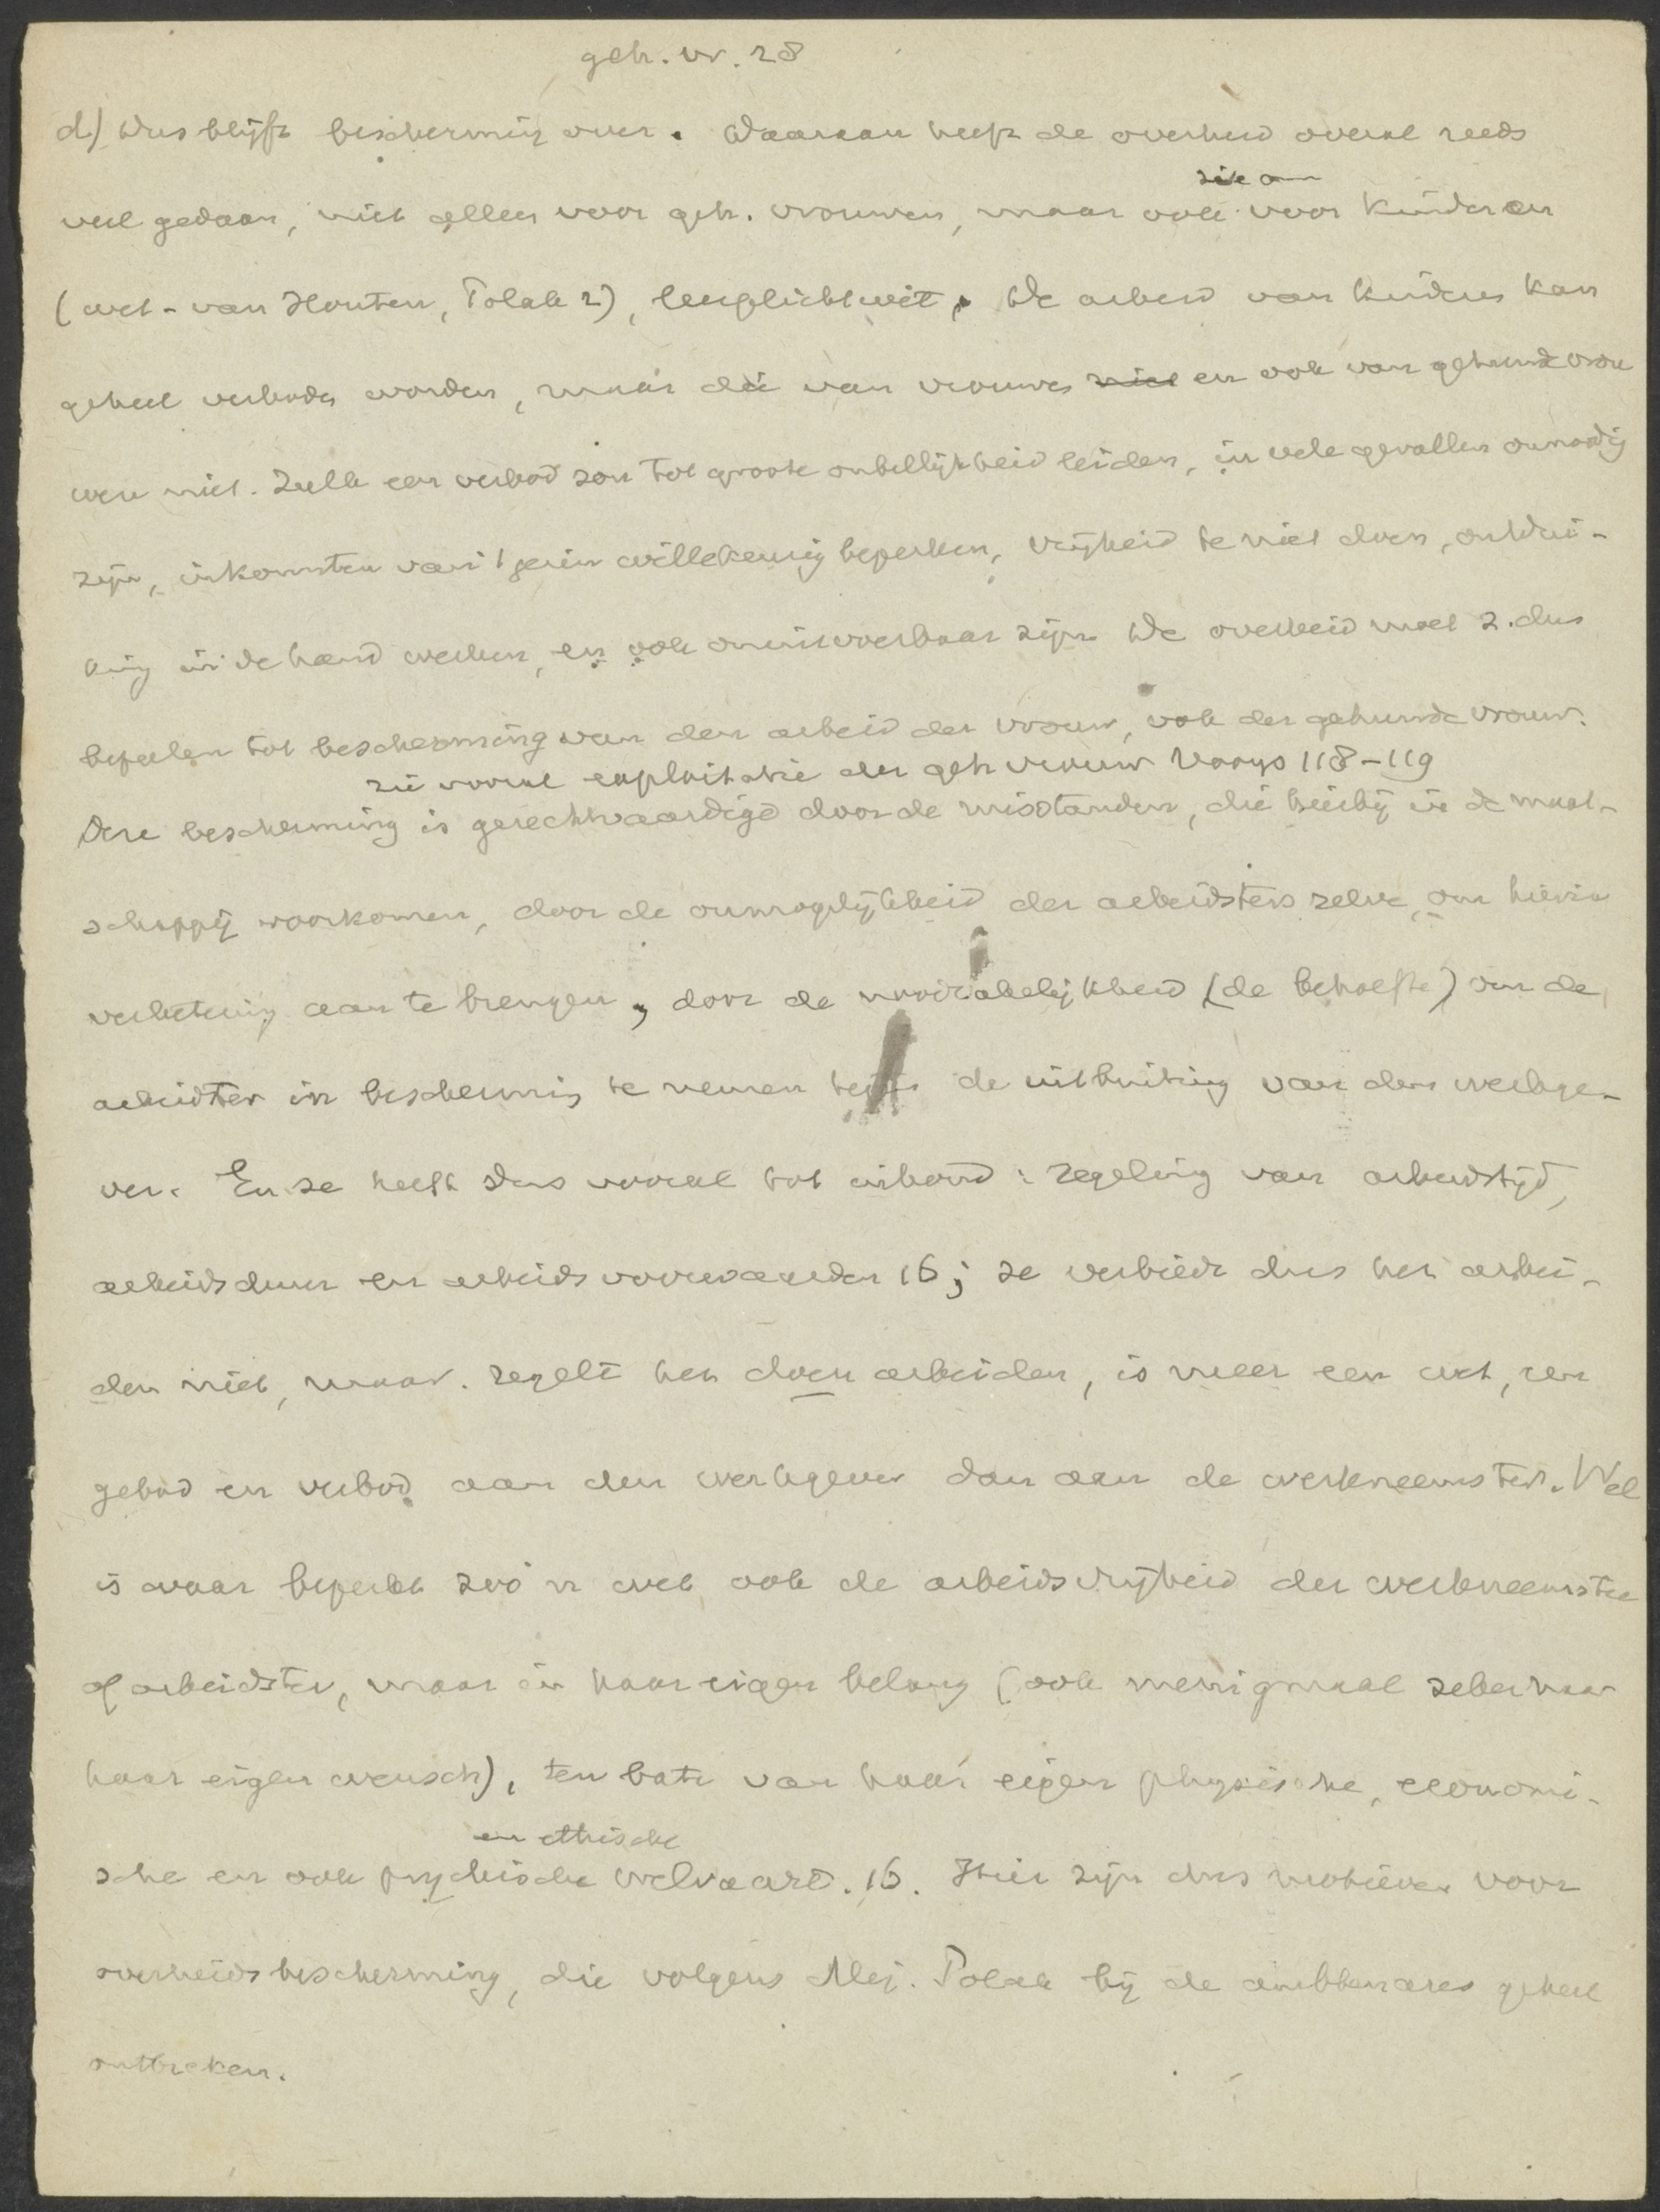 geh. vr. 28
d) Dus blijft bescherming over. Daaraan heeft de overheid overal reeds
zie om
veel gedaan, niet alleen voor geh. vrouwen, maar ook voor kinderen
(wet-van Houten, Polak 2), leerplichtwet. De arbeid van kinders kan
geheel verboden worden, maar die van vrouwen niet en ook van gehuwde vrou
wen niet. Zulk een verbod zou tot groote onbillijkheid leiden, in vele gevallen onnoodig
zijn, inkomsten van 't gezin willekeurig beperken, vrijheid te niet doen, ontdui-
king in de hand werken, en ook onuitvoerbaar zijn. De overheid moet z. dus
bepalen tot bescherming van den arbeid der vrouw, ook der gehuwde vrouw.
zie vooral exploitatie der geh vrouw Vooys 118-119
Deze bescherming is gerechtvaardigd door de misstanden, die hierbij in de maat-
schappij voorkomen, door de onmogelijkheid der arbeidsters zelve, om hierin
verbetering aan te brengen, door de noodzakelijkheid (de behoefte) om de
arbeidster in bescherming te nemen tegen de uitbuiting van den werkge-
ver. En ze heeft dus vooral tot inhoud: regeling van arbeidstijd,
arbeidsduur en arbeidsvoorwaarden 16; ze verbiedt dus het arbei-
den niet, maar regelt het doen arbeiden, is meer een wet, een
gebod en verbod aan den werkgever dan aan de werkneemster. Wel
is waar beperkt zoo'n wet ook de arbeidsvrijheid der werkneemster
of arbeidster, maar in haar eigen belang (ook menigmaal zeker naar
haar eigen wensch), ten bate van haar eigen physische, economi-
en ethische
sche en ook psychische welvaart. 16. Hier zijn dus motieven voor
overheidsbescherming, die volgens Mej. Polak bij de ambtenares geheel
ontbreken.